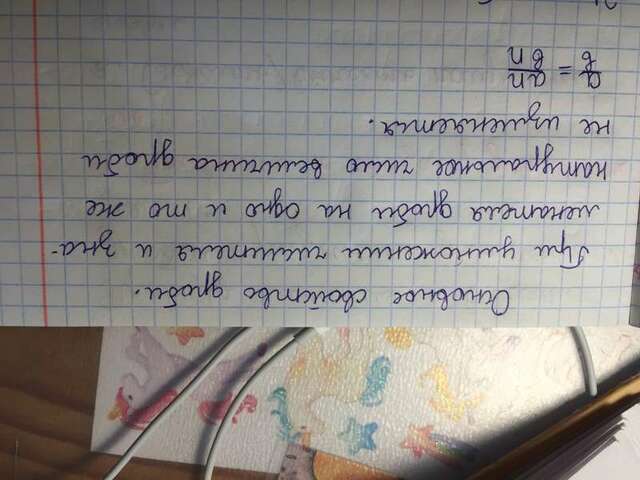 Основное свойство дроби.
При умножении числителя и зна-
менателя дроби на одно и то же
натуральное число величина дроби
не изменяется.
a/b = an/bn